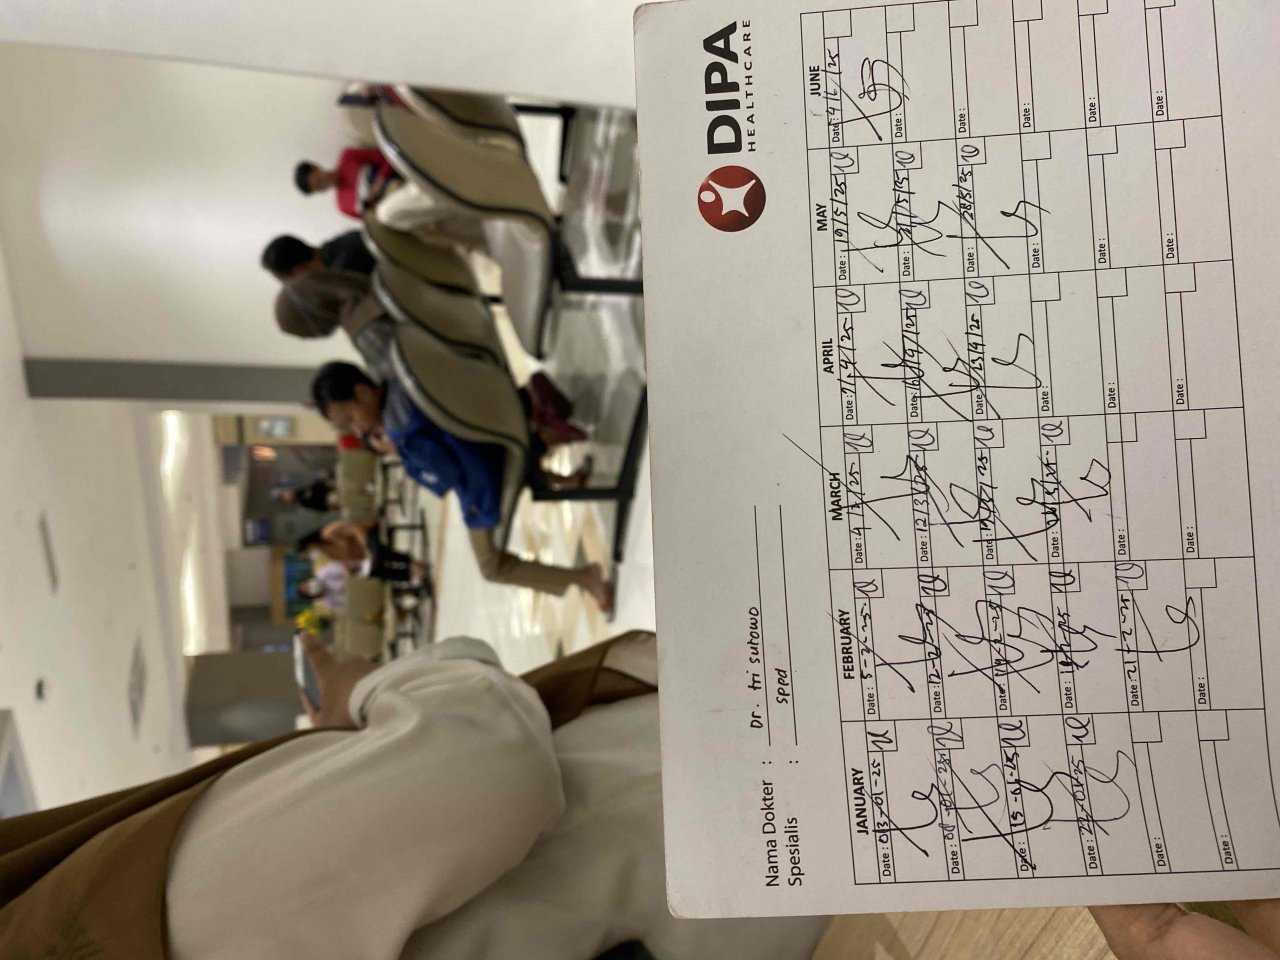 DIPA
HEALTHCARE
Nama Dokter : Dr. tri sutowo
Spesialis : sppd
JANUARY FEBRUARY MARCH APRIL MAY JUNE
Date: 03-01-25 Date: 5-2-25 Date: 4/3/25 Date: Date: 19/5/25 Date: 4/6/25
Date: 08-01-25 Date: 12-2-25 Date: 12/3/25 Date: 16/4/25 Date: Date:
Date: 15-01-25 Date: Date: Date: 23/4/25 Date: 28/5/25 Date:
Date: 22-01-25 Date: Date: Date: Date: Date:
Date: Date: 21-2-25 Date: Date: Date: Date:
Date: Date: Date: Date: Date: Date: